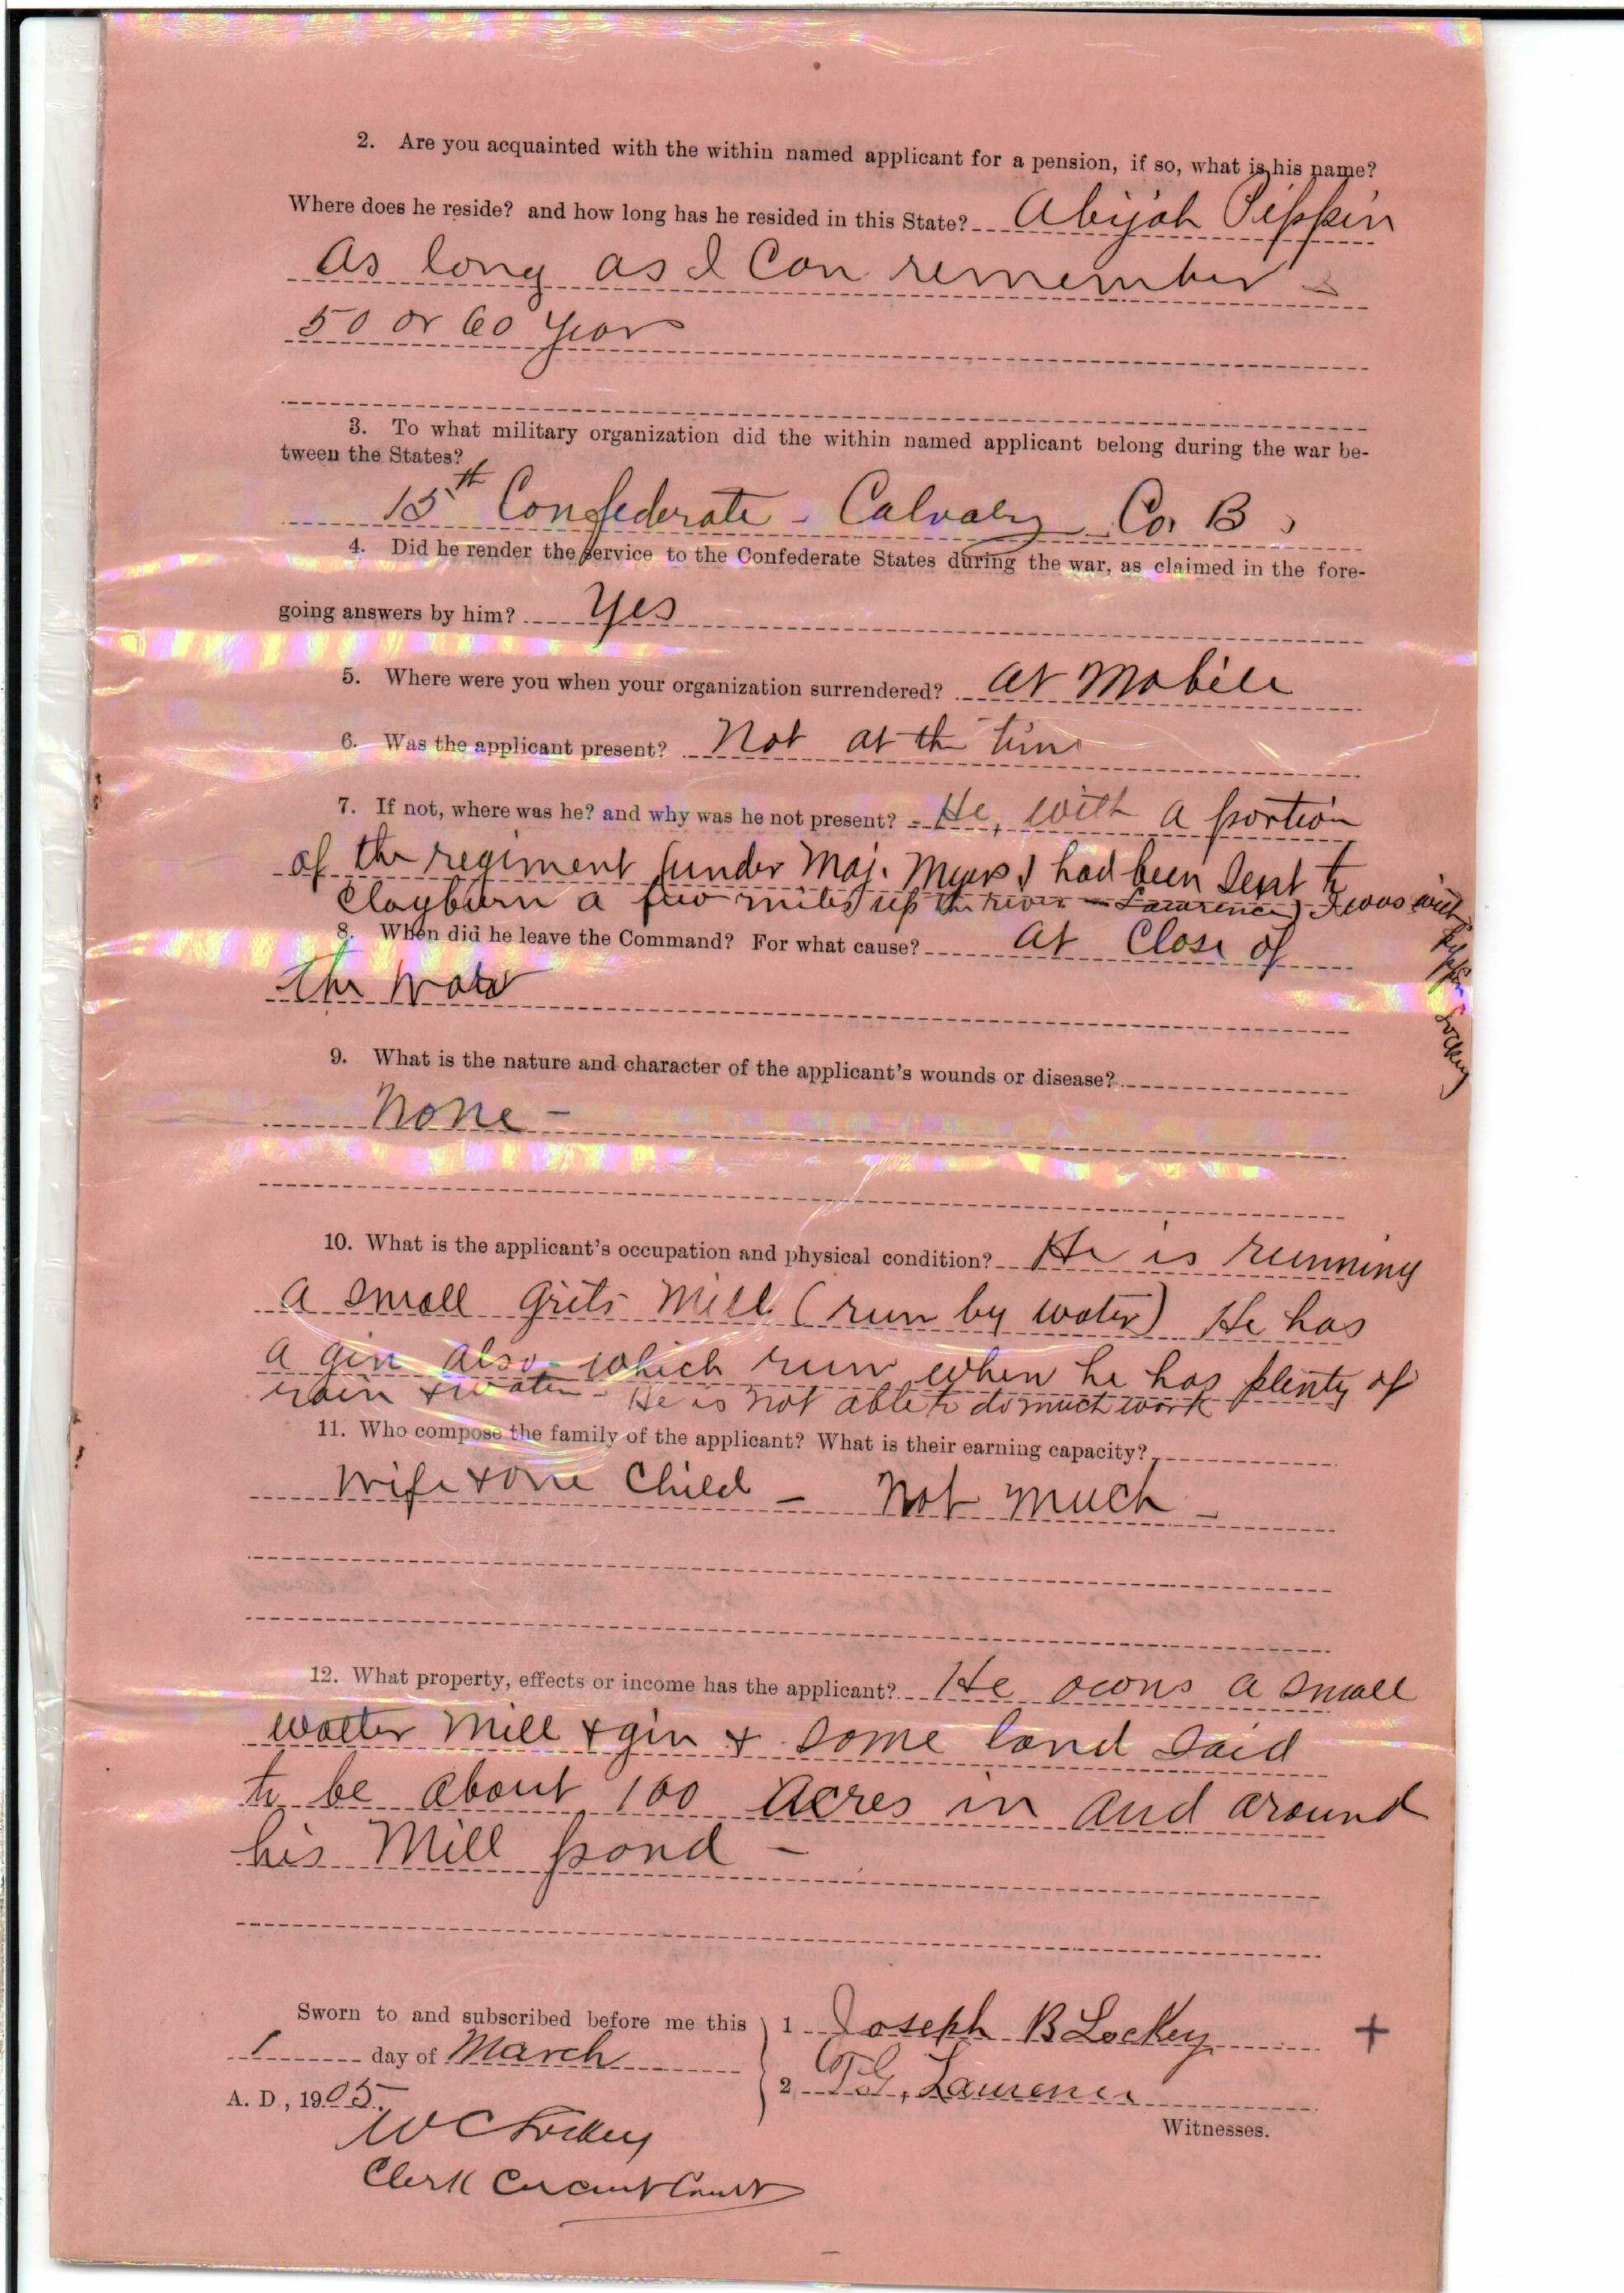 2. Are you acquainted with the within named applicant for a pension, if so, what is his name?
Where does he reside? and how long has he resided in this State? Abijah Pippin
as long as I Can remember
50 or 60 year
3. To what military organization did the within named applicant belong during the war be-
tween the States?
15th Confederate - Calvaley Co. B
4. Did he render the service to the Confederate States during the war, as claimed in the fore-
going answers by him? Yes
5. Where were you when your organization surrendered? at Mobile
6. Was the applicant present? Not at the time
7. If not, where was he? and why was he not present? He, with a portion
of the regiment (under Maj. Myers) had been sent to
Clayburn a few miles up the river - Lawrence) I was with
Pippin Lockey
8. When did he leave the Command? For what cause? at Close of
the war
9. What is the nature and character of the applicant's wounds or disease?
None -
10. What is the applicant's occupation and physical condition? He is running
a small grits Mill (run by water) He has
a gin also which run when he has plenty of
rain & water - He is not able to do much work
11. Who compose the family of the applicant? What is their earning capacity?
Wife & one Child - Not much -
12. What property, effects or income has the applicant? He owns a small
watter Mill & gin & some land said
to be about 100 Acres in and around
his Mill pond -
Sworn to and subscribed before me this
1 day of March
A. D., 1905.
1 Joseph B Lockey +
2 T. G. Lawrence
Witnesses.
W C Lockey
Clerk Circuit Court